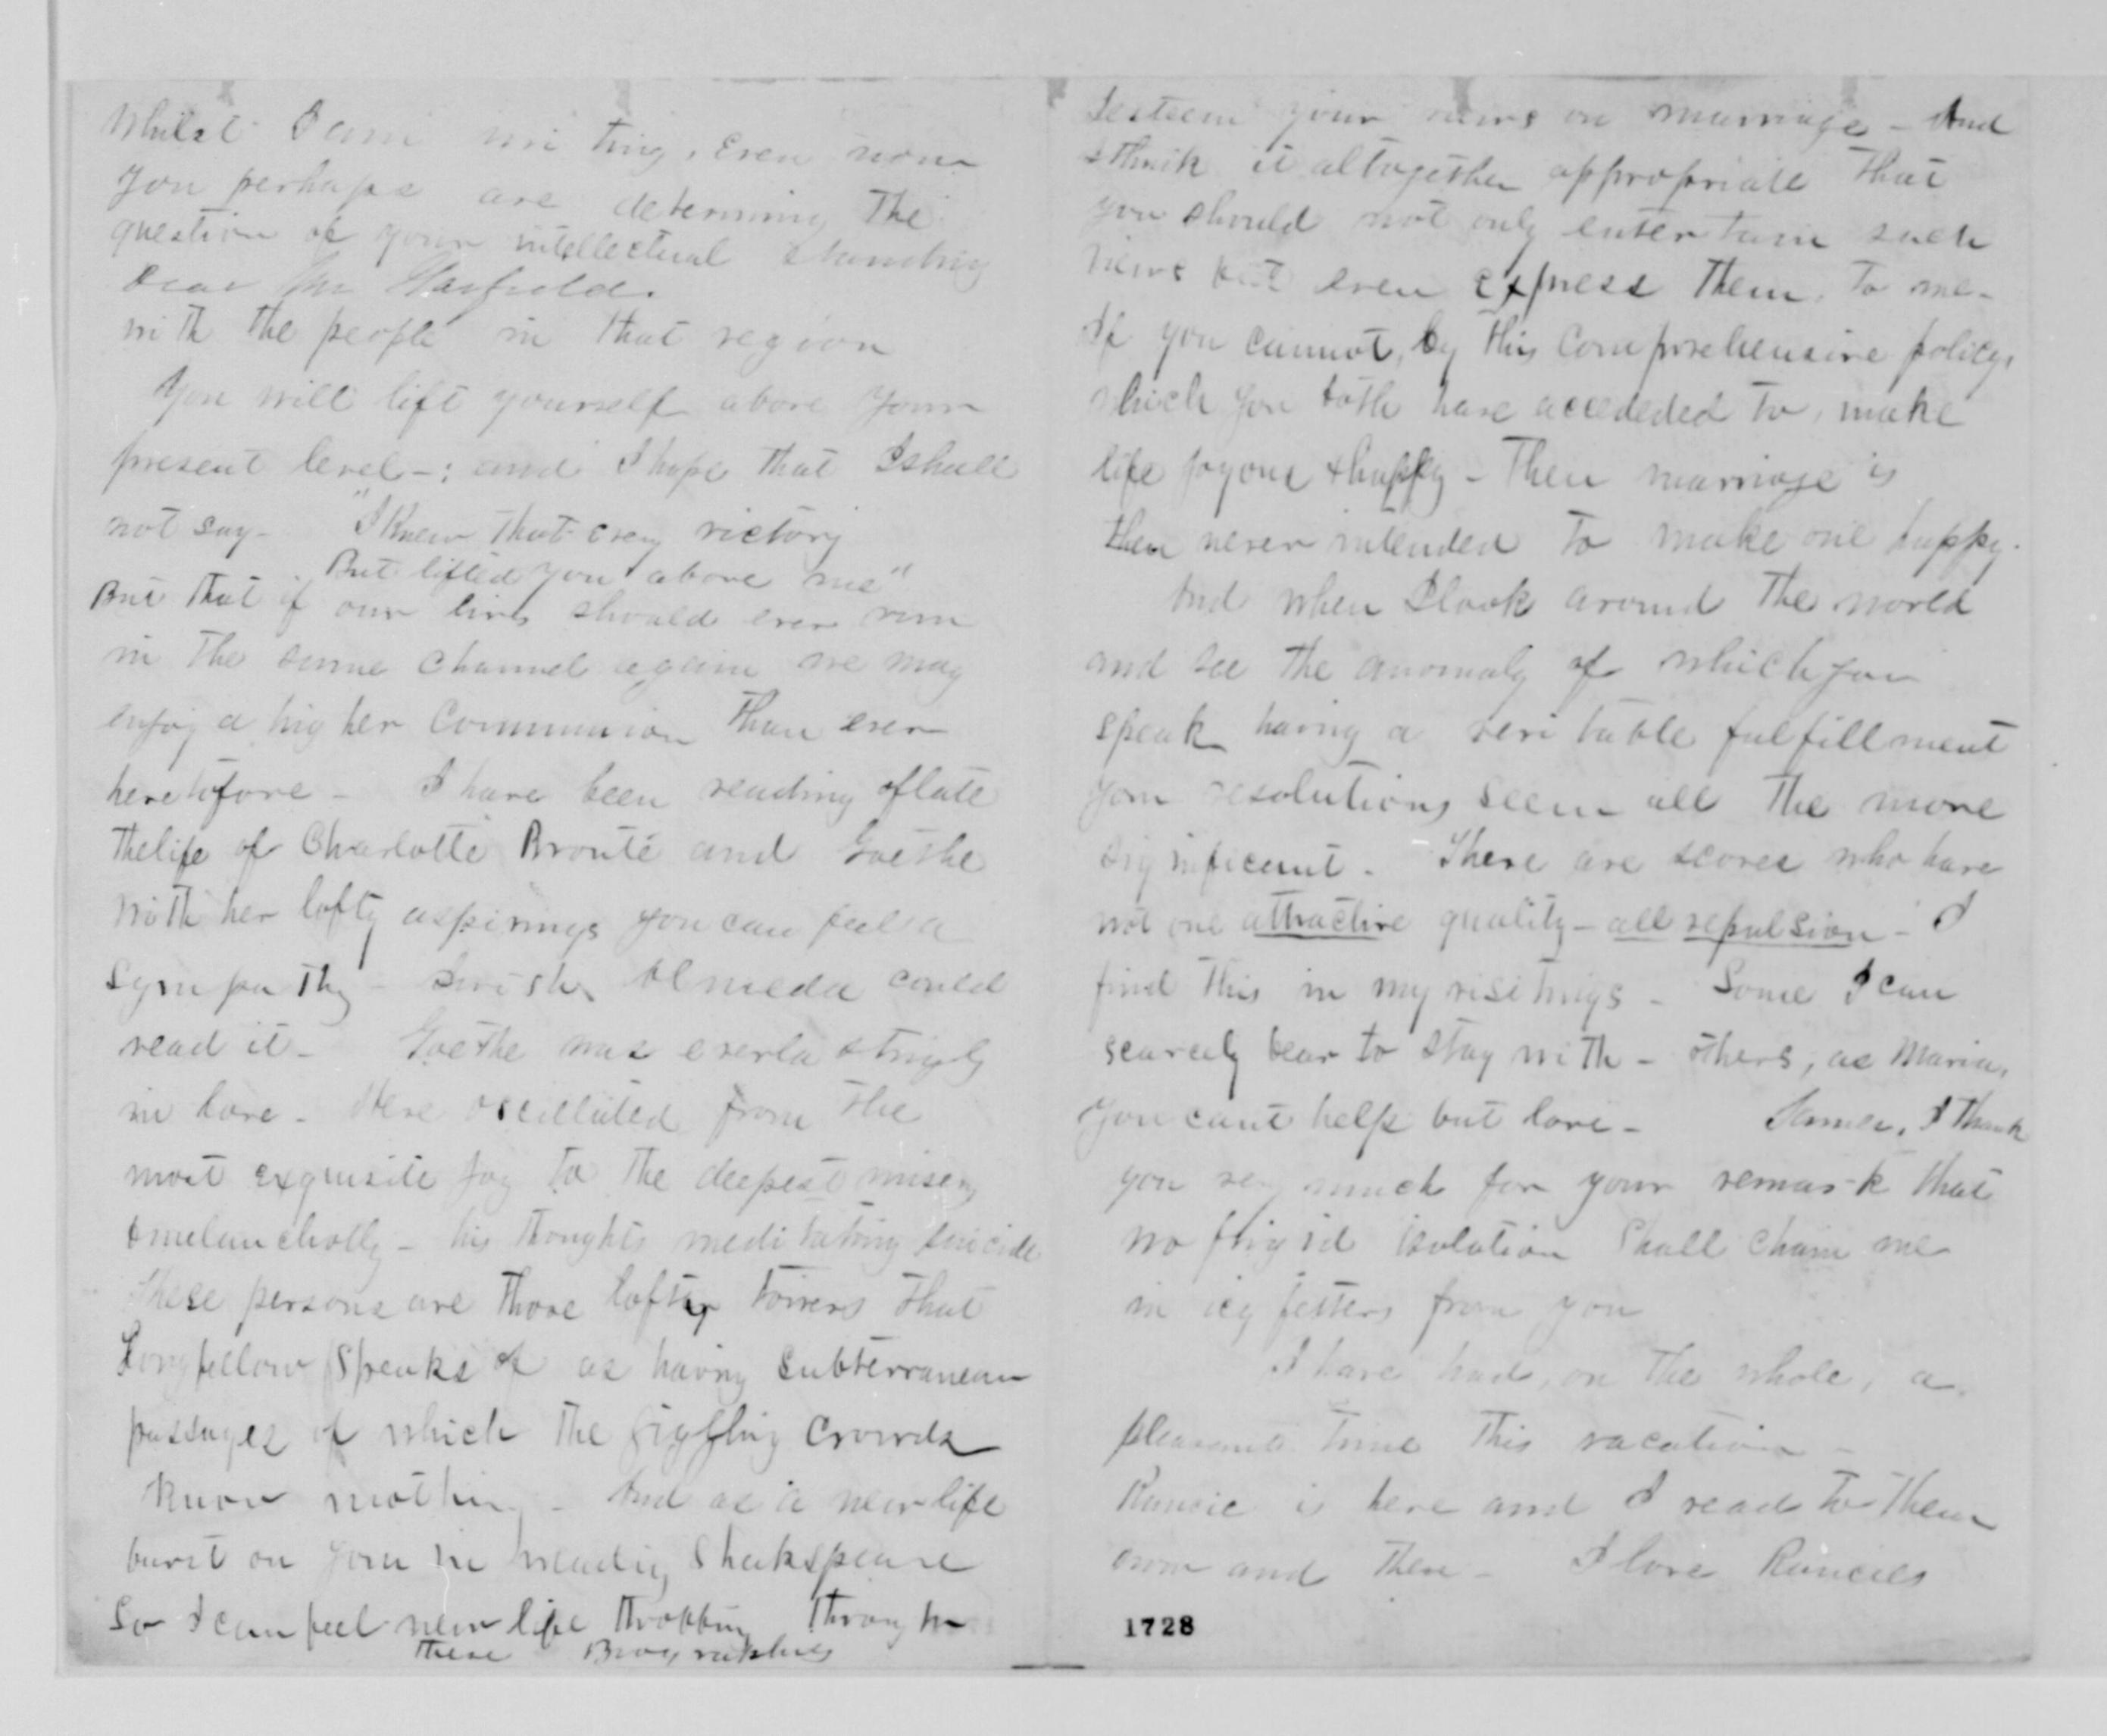 Whilst I am writing, even now
you perhaps are determing the
question of your intellectual standing
Dear Mr Garfield.
with the people in that region
You will lift yourself above your
present level -; and I hope that I shall
not say - "I knew that every victory
But lifted you above me"
But that if our lives should ever run
in the same channel again we may
enjoy a higher communion than ever
heretofore - I have been reading of late
the life of Charlotte Bronté and Goethe
With her lofty aspirings you can feel a
sympathy - I wish Almeda could
read it - Goethe was everlastingly
in love - Here oscillated from the
most exquisite joy to the deepest misery
& melancholly - his thoughts meditating suicide
These persons are those lofty towers that
Longfellow speaks of as having subterranean
passages of which the giggling crowds
know nothing - And as a new life
burst on you in reading Shakspeare
So I can feel new life throbbing through
these Biographies
I esteem your views on marriage - And
I think it altogether appropriate that
you should not only entertain such
views but even express them, to me -
If you cannot, by this comprehensive policy,
which you both have acceeded to, make
life joyous & happy - Then marriage is
then never intended to make one happy.
And when I look around the world
and see the anomaly of which you
speak having a veritable fulfillment
your resolutions seem all the more
significant. There are scores who have
not one attractive quality - all repulsion - I
find this in my visitings - Some I can
scarcely bear to stay with - others, as Maria,
you cant help but love - James, I thank
you very much for your remark that
no frigid isolation shall chain me
in icy fetters from you
I have had, on the whole, a
pleasant time this vacation -
Runcie is here and I read to them
now and then - I love Runcies
1728